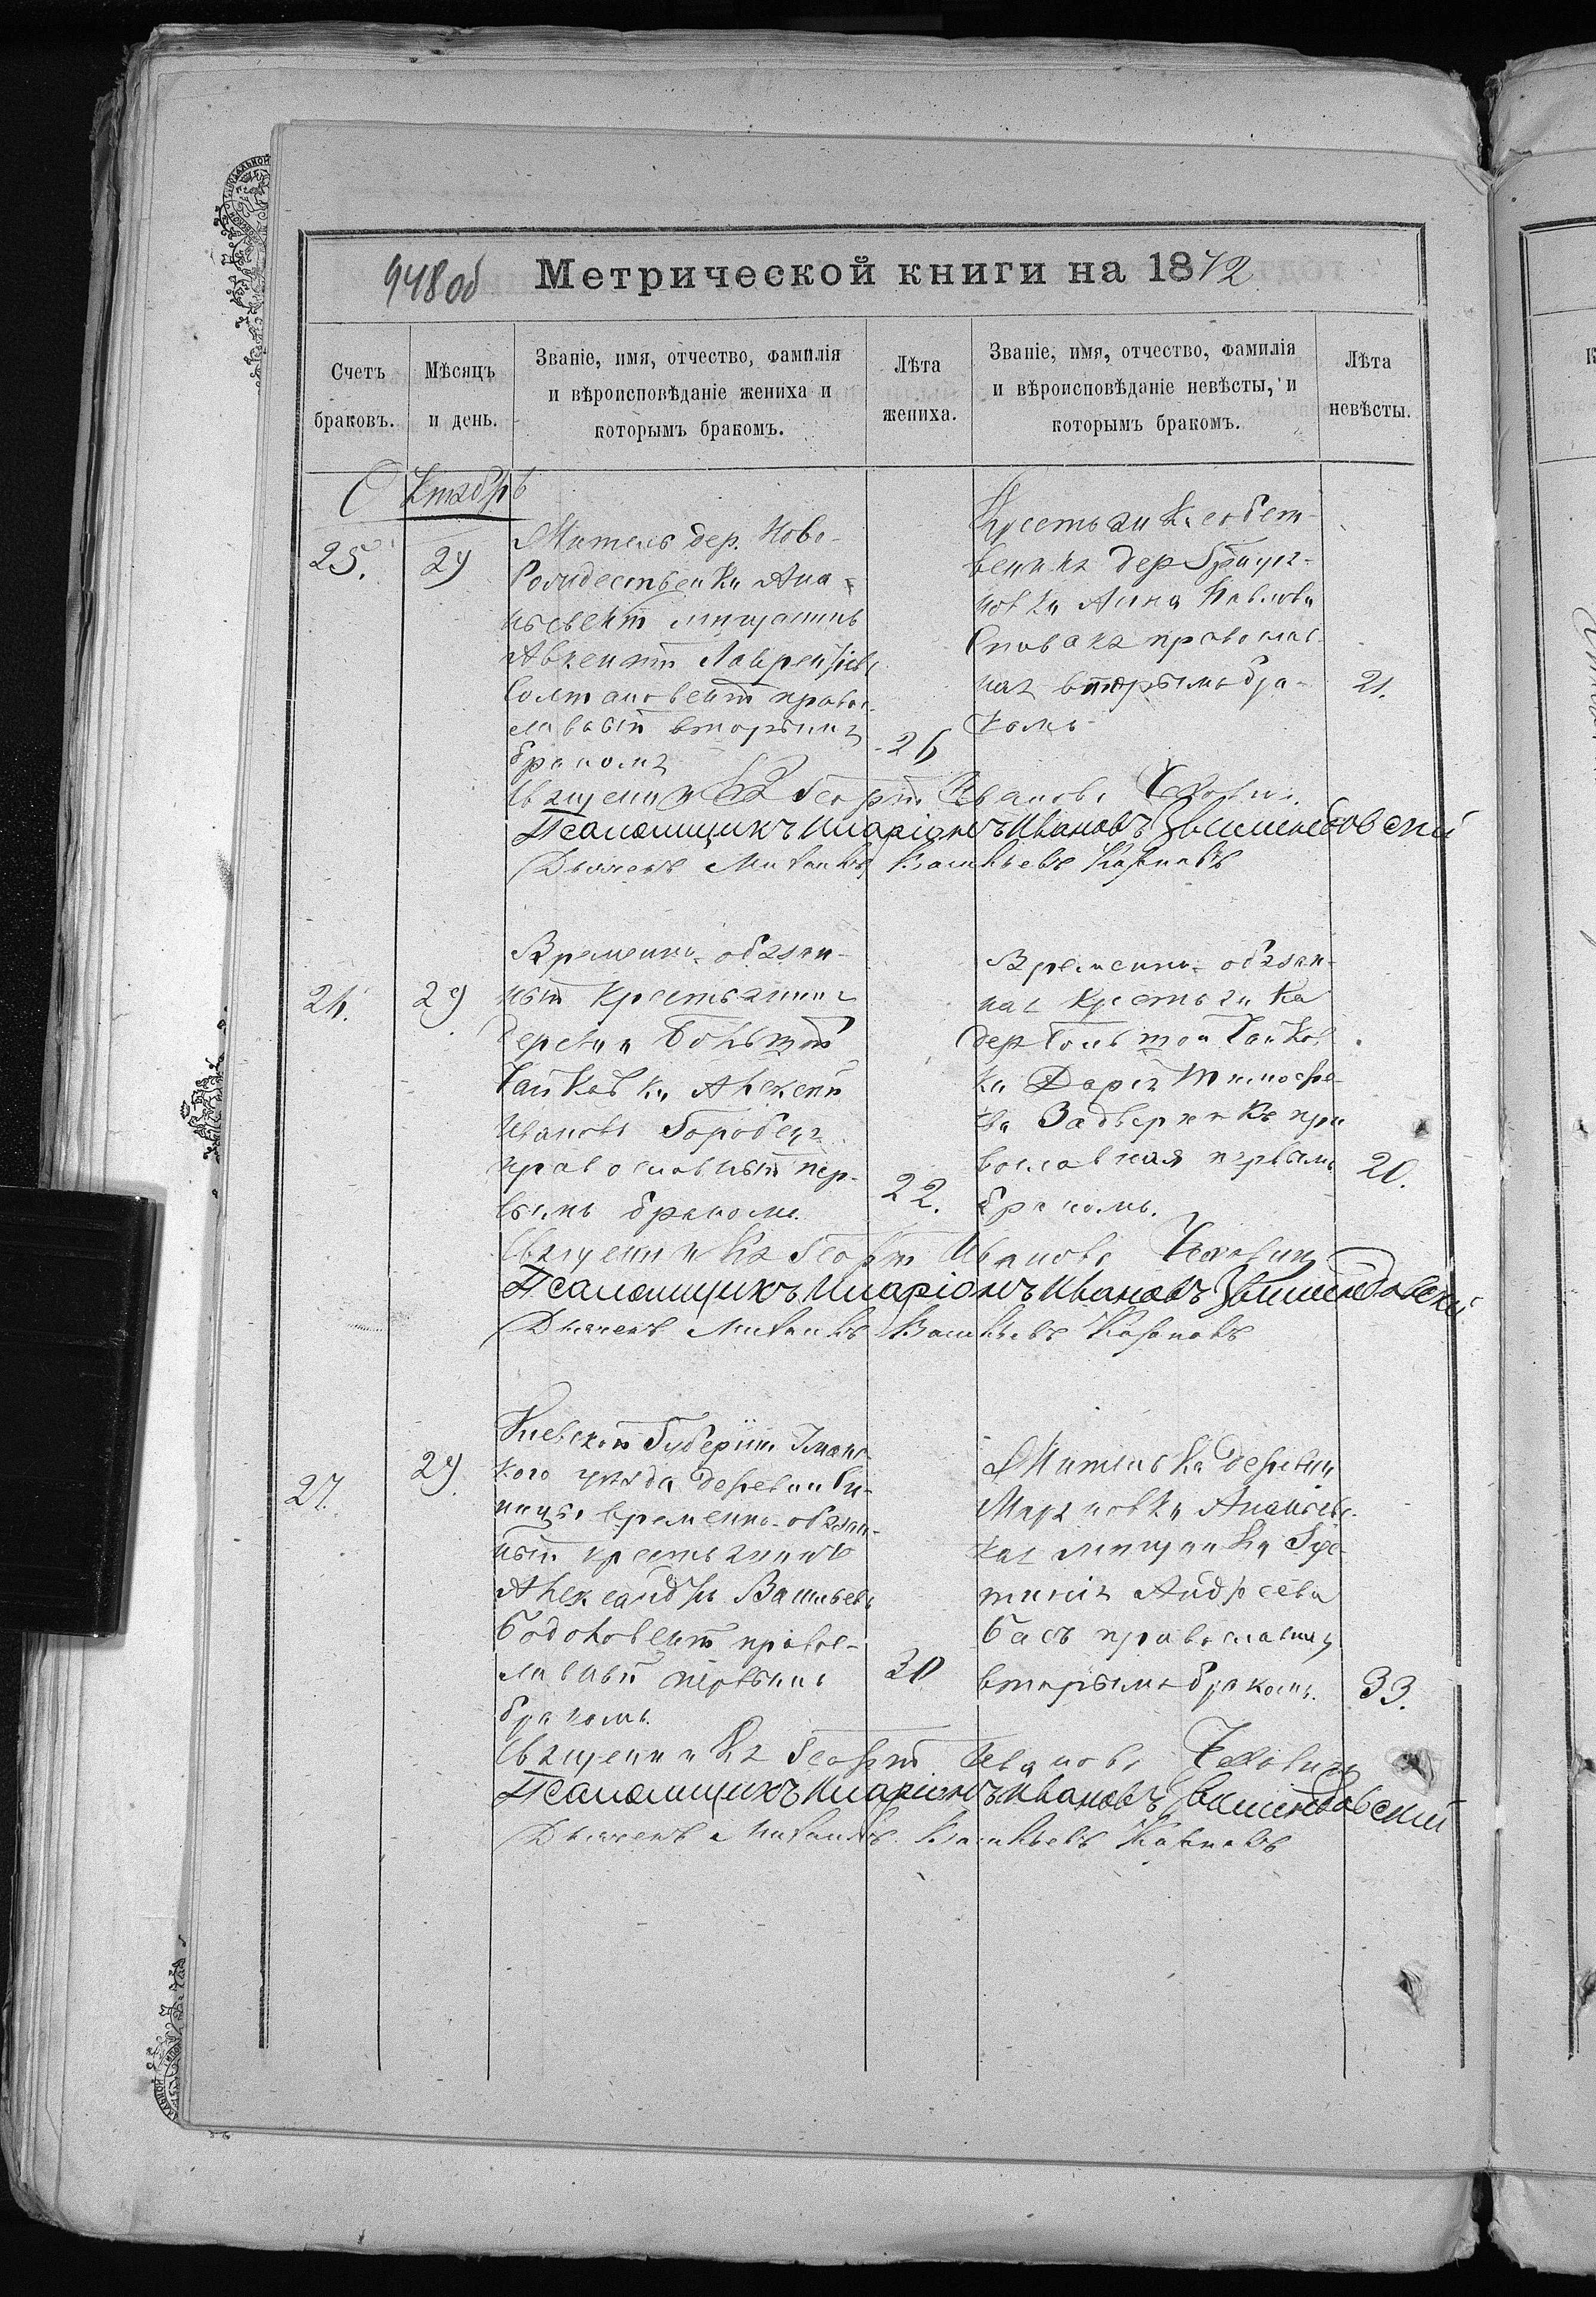 948 об
Метрической книги на 1872
Счетъ браковъ.
Мѣсяцъ и день.
Званіе, имя, отчество, фамилія и вѣроисповѣданіе жениха и которымъ бракомъ.
Лѣта жениха.
Званіе, имя, отчество, фамилія и вѣроисповѣданіе невѣсты, и которымъ бракомъ.
Лѣта невѣсты.
Октябрь
25.
29
Житель дер. Ново-
Рождественки Ана-
ньевскій мѣщанинъ
Авксентій Лаврентіевъ
Солтановскій правос-
лавный вторымъ
бракомъ
26
Крестьянка собст-
венника дер
новки Анна Павлова
православ-
ная вторымъ бра-
комъ
21.
Священникъ Георгій Ивановъ
Псаломщикъ Иларіонъ Ивановъ
Дьячекъ Михаилъ Васильевъ
26.
29
Временно-обязан-
ный крестьянинъ
деревни Большой
Чайковки Алексѣй
Ивановъ Горобецъ
православный пер-
вымъ бракомъ
22.
Временно-обязан-
ная крестьянка
дер Большой Чайков-
ки Дарія Тимофѣе-
ва пра
вославная первымъ
бракомъ.
20.
Священникъ Георгій Ивановъ
Псаломщикъ Иларіонъ Ивановъ
Дьячекъ Михаилъ Васильевъ
27.
29.
Кіевской Губерніи Уманс-
кого уѣзда деревни
временно-обязан-
ный крестьянинъ
Александръ Васильевъ
правос-
лавный первымъ
бракомъ.
30
Жителька деревни
Марьновки Ананьевс-
кая мѣщанка
Андреева
Басъ православная
вторымъ бракомъ.
33.
Священникъ Георгій Ивановъ
Псаломщикъ Иларіонъ Ивановъ
Дьячекъ Михаилъ Васильевъ